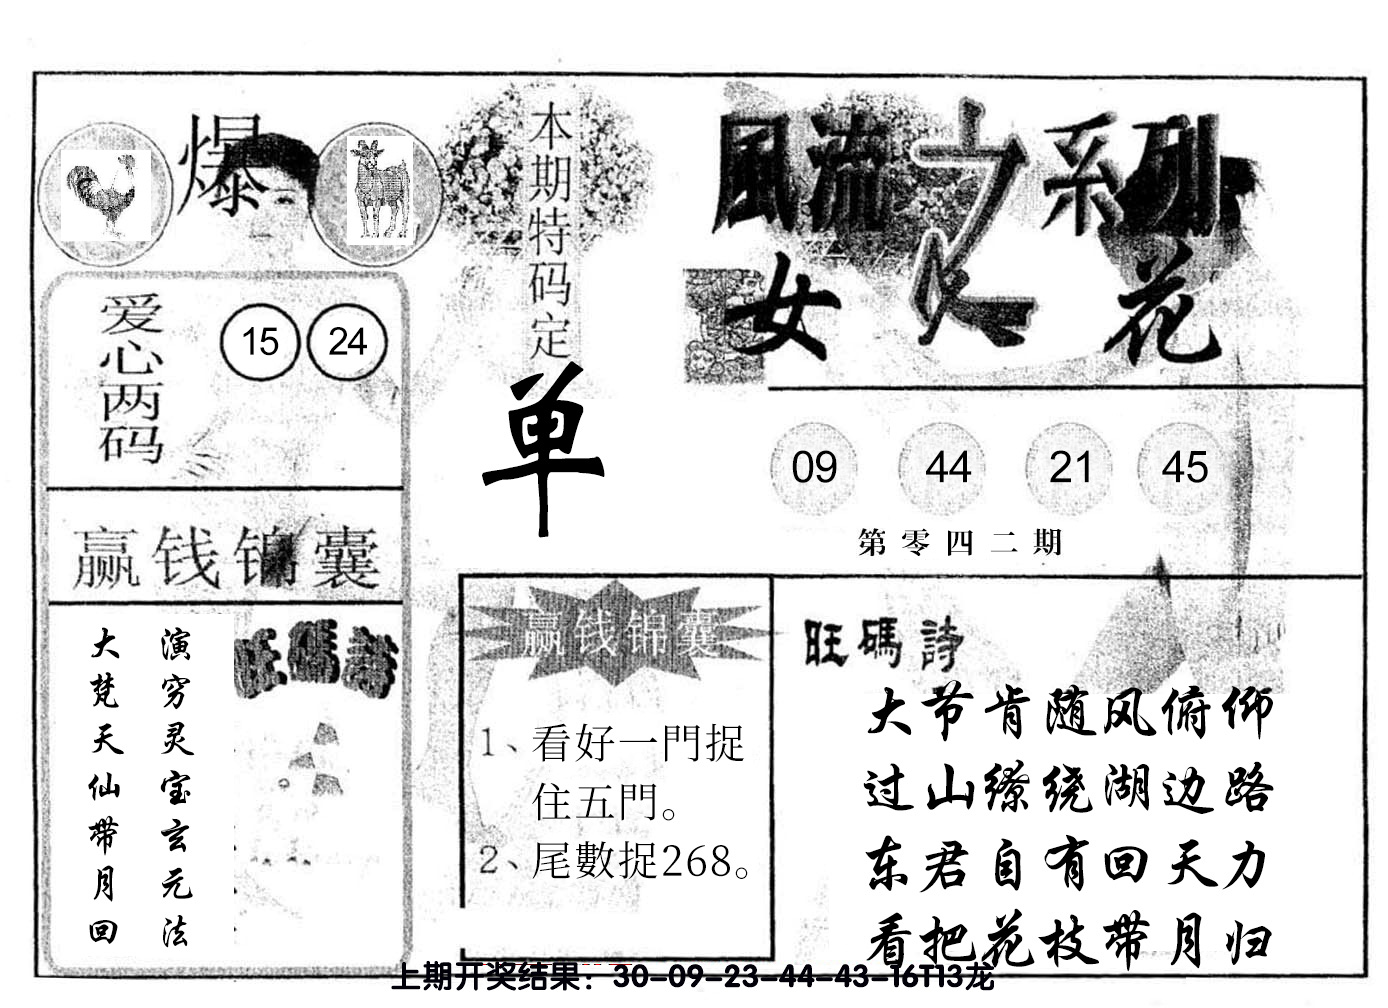 爆
本期特码定
单
風流之系列
女人花
爱心两码
15 24
09 44 21 45
第零四二期
赢钱锦囊
演穷灵宝玄元法
大梵天仙带月回
旺碼詩
赢钱锦囊
1、看好一門捉
住五門。
2、尾數捉268。
旺碼詩
大节肯随风俯仰
过山缭绕湖边路
东君自有回天力
看把花枝带月归
上期开奖结果：30-09-23-44-43-16T13龙